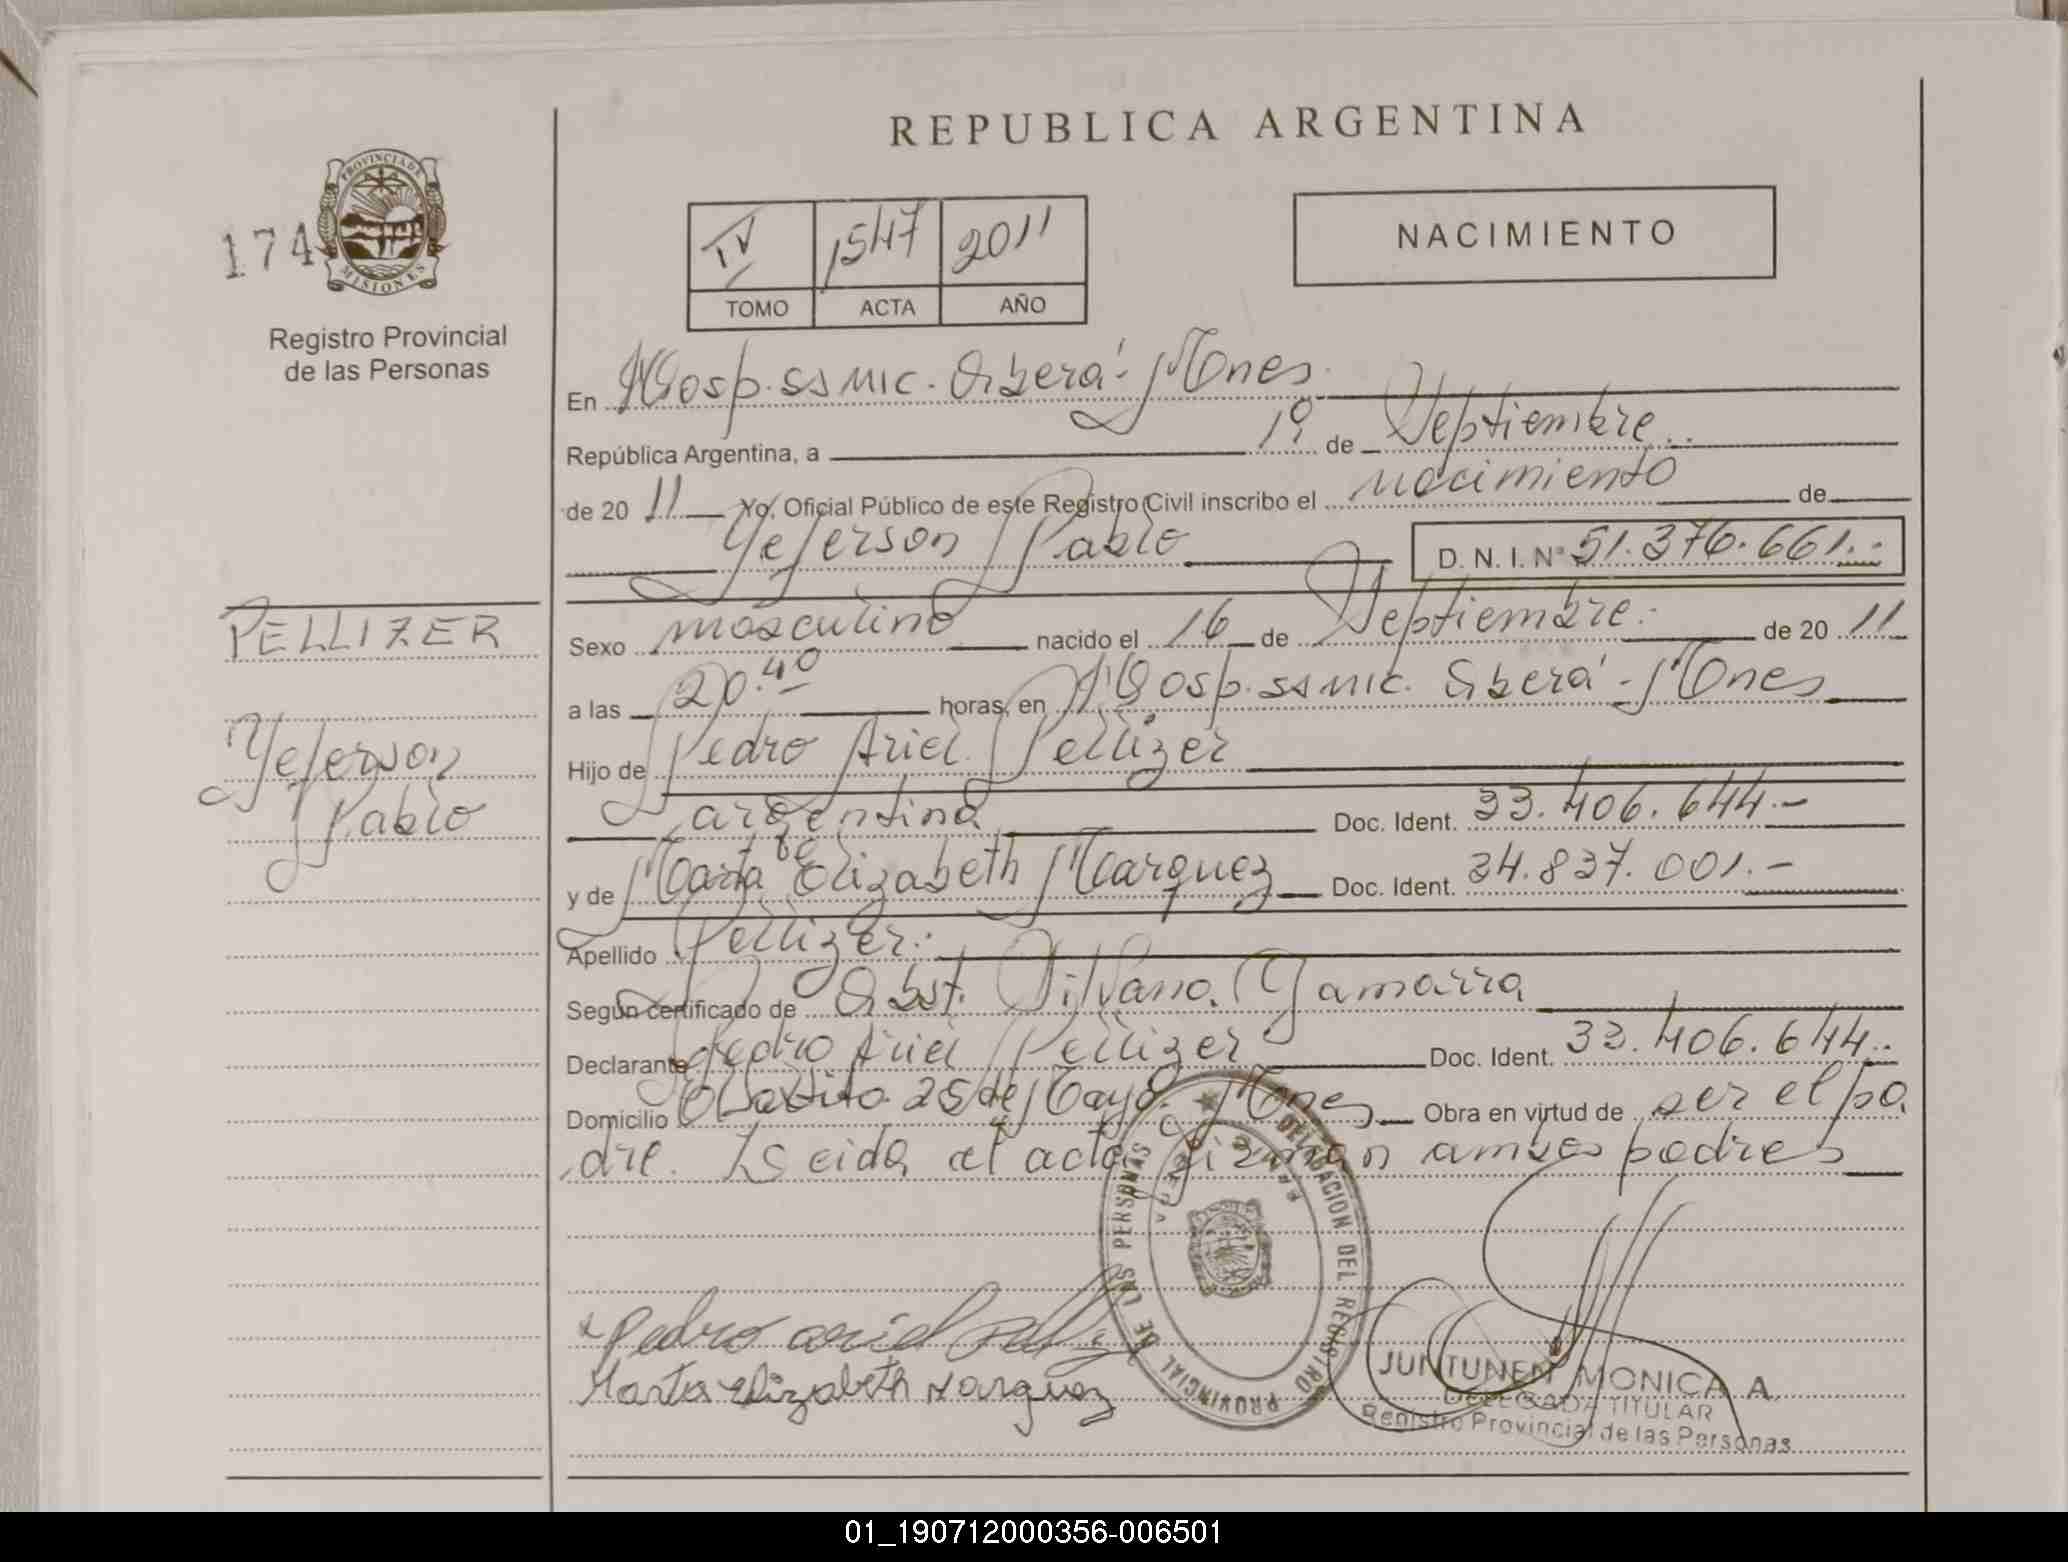 REPUBLICA ARGENTINA
PROVINCIA DE
MISIONES
174
Registro Provincial
de las Personas
IV 1547 2011
TOMO ACTA AÑO
NACIMIENTO
En Hosp. SSMIC. Oberá - Mnes.
República Argentina, a 19 de Septiembre..
de 20 11 Yo, Oficial Público de este Registro Civil inscribo el nacimiento de
Yeferson Pablo D. N. I. Nº 51.376.661.-
PELLIZER
Yeferson
Pablo
Sexo masculino nacido el 16 de Septiembre. de 20 11
a las 20.40 horas, en Hosp. SSMIC. Oberá - Mnes
Hijo de Pedro Ariel Pellizer
argentina Doc. Ident. 33.406.644.-
y de Marta Elizabeth Marquez Doc. Ident. 34.837.001.-
Apellido Pellizer.
Según certificado de Obst. Silvana Gamarra
Declarante Pedro Ariel Pellizer Doc. Ident. 33.406.644..
Domicilio 25 de Mayo. Mnes Obra en virtud de ser el pa
dre. Leida el acta firman ambos padres
Pedro ariel
Marta elizabeth Marquez
DELEGACION DEL REGISTRO PROVINCIAL DE LAS PERSONAS
JUNTUNEN MONICA A.
DELEGADA TITULAR
Registro Provincial de las Personas
01_190712000356-006501